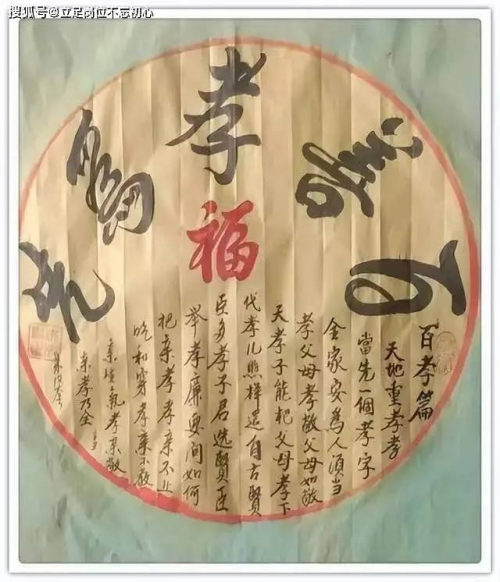 搜狐号@立足岗位不忘初心
百善孝為先
福
百孝篇
天地重孝孝
當先個孝字
全家安為人須当
孝父母孝敬父母如敬
天孝子能把父母孝下
代孝儿照样還自古賢
臣多孝子君选賢臣
举孝廉要问如何
把亲孝孝亲不止
吃和穿孝亲不教
亲生氣孝亲敬
亲孝乃全